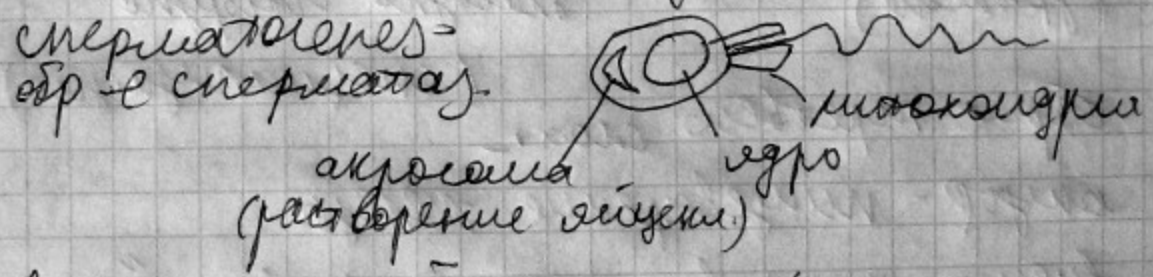 сперматогенез-
обр-е сперматоз.
митохондрия
акросома
ядро
(растворение яйцекл.)